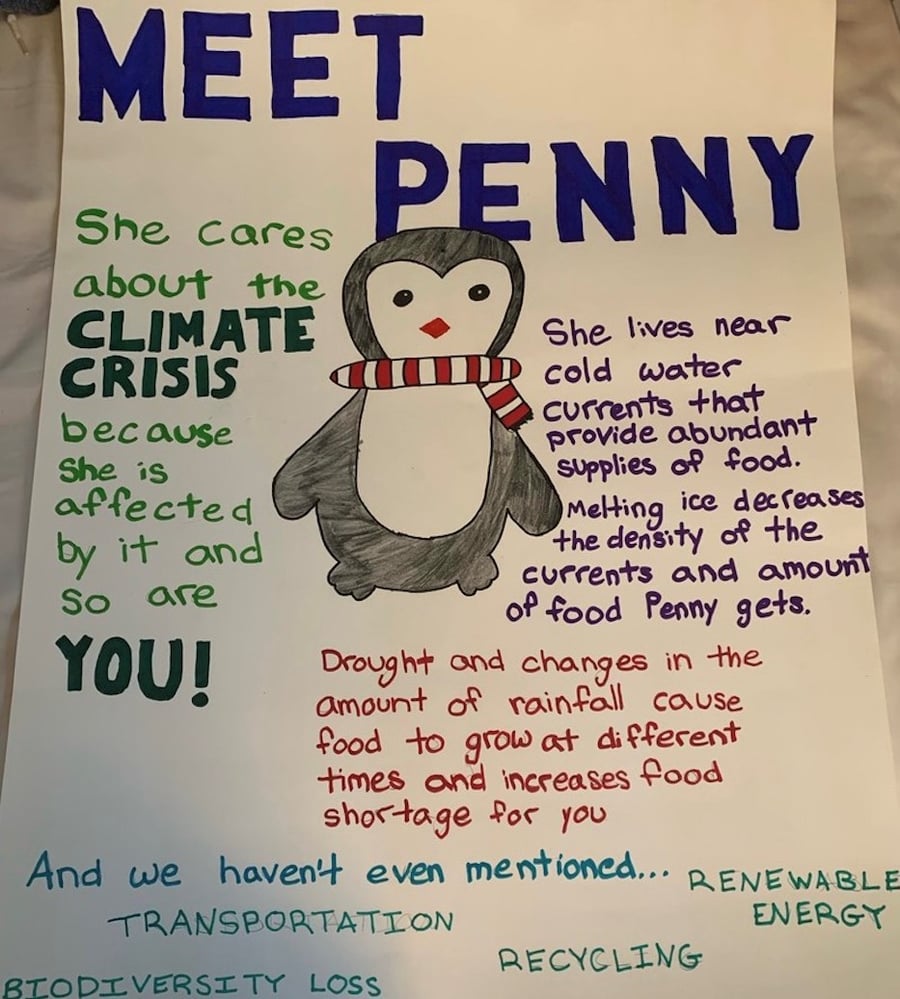 MEET
PENNY
She cares
about the
CLIMATE
CRISIS
because
she is
affected
by it and
so are
YOU!
She lives near
cold water
currents that
provide abundant
supplies of food.
Melting ice decreases
the density of the
currents and amount
of food Penny gets.
Drought and changes in the
amount of rainfall cause
food to grow at different
times and increases food
shortage for you
And we haven't even mentioned...
RENEWABLE
ENERGY
TRANSPORTATION
RECYCLING
BIODIVERSITY LOSS